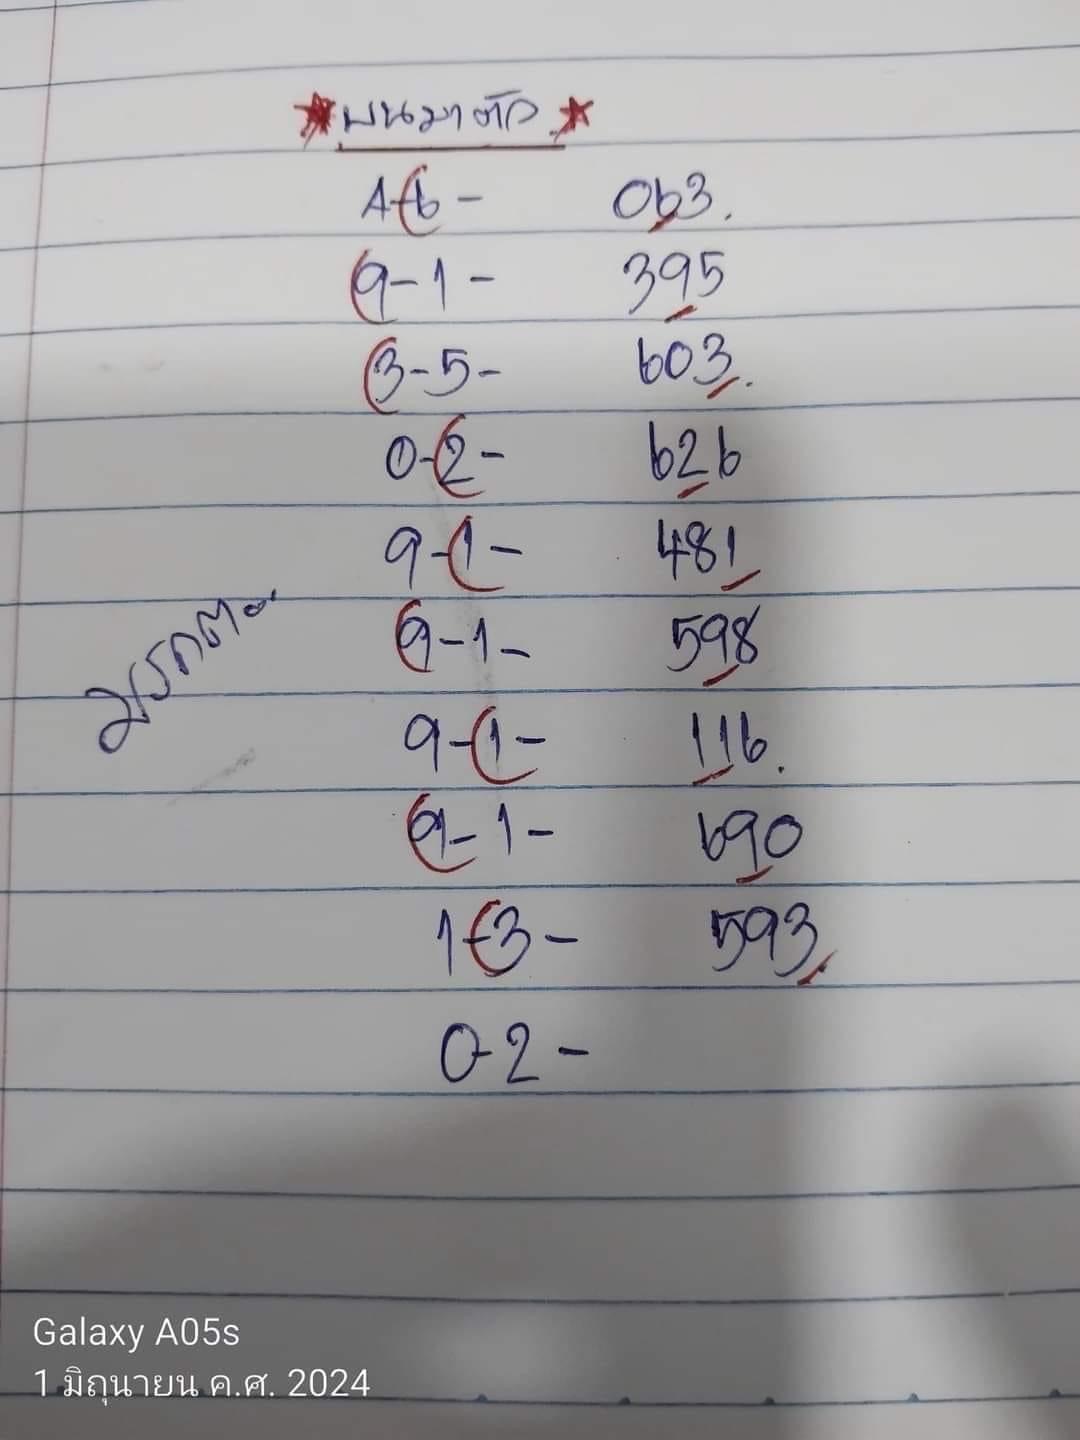 บนมาตัว
A-6- 063.
9-1- 395
3-5- 603.
0-2- 626
9-1- 481
9-1- 598
มรกต
9-1- 116.
9-1- 690
1-3- 593
0-2-
Galaxy A05s
1 มิถุนายน ค.ศ. 2024